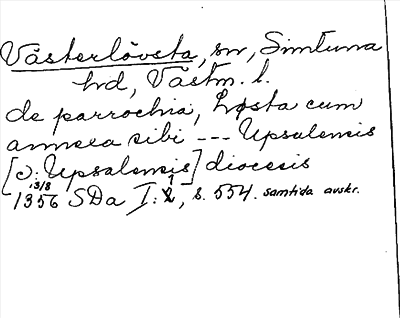 Västerlövsta, sn, Simtuna
hd, Västm. l.
de parrochia, Løsta cum
annexa sibi --- Upsalensis
[ɔ: Upsalensis] diocesis
13/8
1356 SDa I:1, s. 554. samtida avskr.